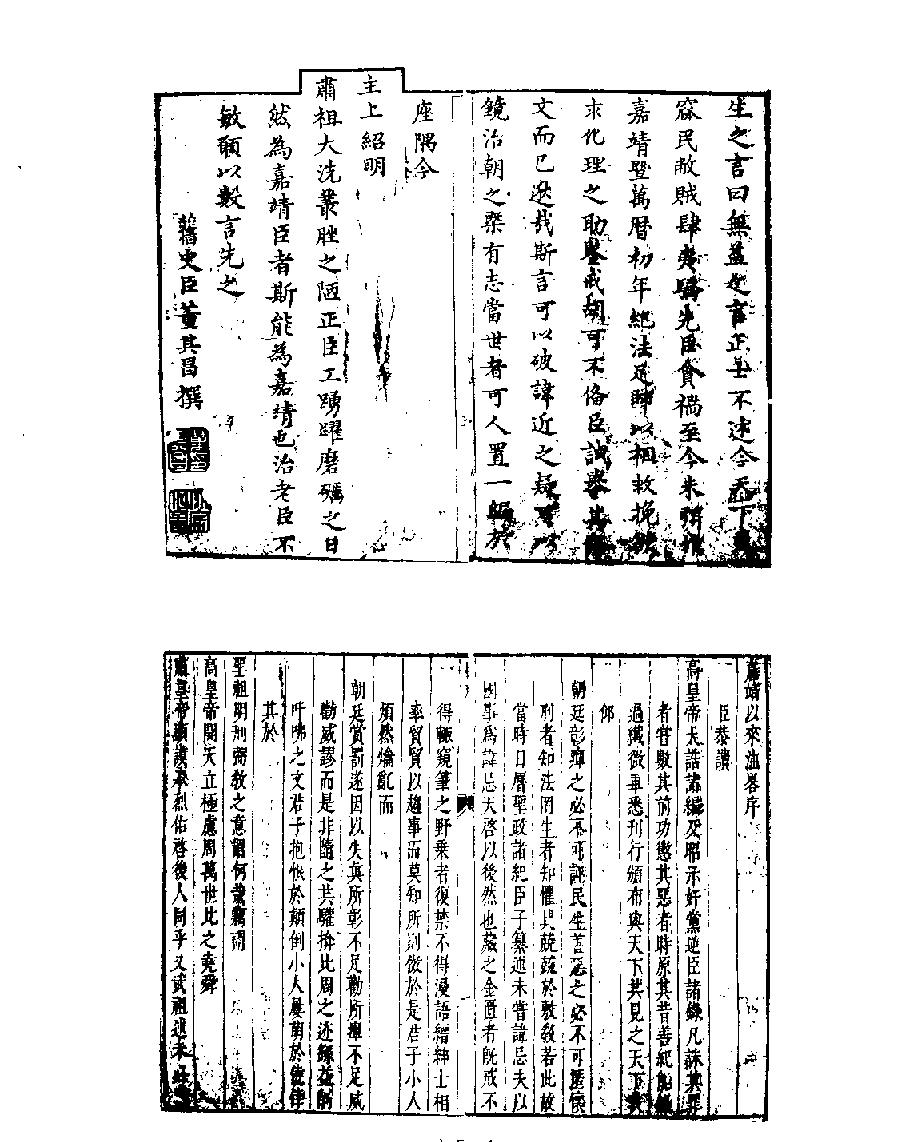 生之言曰無益之言正士不述今天下
窾民敝賊肆夷驕先臣貪禍至今未
嘉靖暨萬曆初年紀法足時以相救挽
求化理之助鑒戒胡可不脩臣試舉其
文而已遜哉斯言可以破諱近之疑
鏡治朝之槩有志當世者可人置一編於
座隅今
主上紹明
肅祖大洗叢脞之陋正臣工踴躍磨礪之日
然為嘉靖臣者斯能為嘉靖也治老臣不
敏願以數言先之
舊史臣董其昌撰
嘉靖以來注畧序
臣恭讀
高皇帝大誥諸編及昭示奸黨逆臣諸錄凡誅其罪
者嘗敘其前功懲其惡者時原其昔善
過纖微畢悉刊行頒布與天下共見之天下
仰
朝廷彰癉之必不可誣民生善惡之必不可
刑者知法罔生者知懼
當時日曆聖政諸紀臣子纂述未嘗諱忌夫以
因事為諱忌大啓以後然也藏之金匱者既戒不
得輒窺筆之野乗者復禁不得漫語縉紳士相
率貿貿以趨事而莫知所訓倣於是君子小人
煩然殽亂而
朝廷賞罰遂因以失真所彰不足勸所癉不足威
勸威謬而是非隨之共驩搆比周之迹
吁咈之文君子抱恨於顛倒小人
其於
聖祖明刑弼敎之意謂何
高皇帝開天立極慮周萬世比之堯舜
肅皇帝顯謨承烈佑啓後人同乎文武祖述未